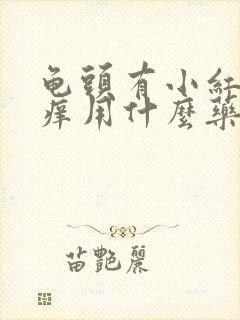 龟頭有小紅
痒用什麼藥
苗艷麗